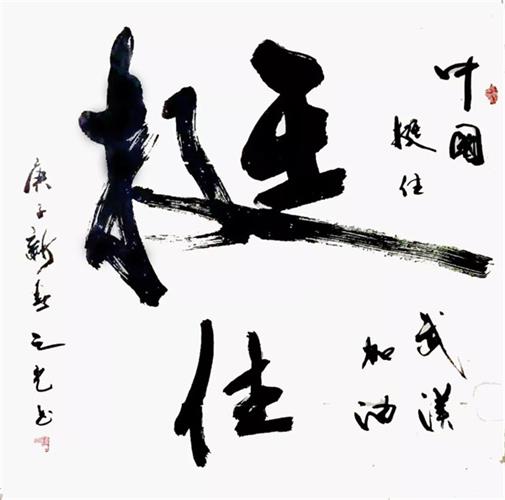 中國
挺住
武漢
加油
挺住
庚子新春之光书